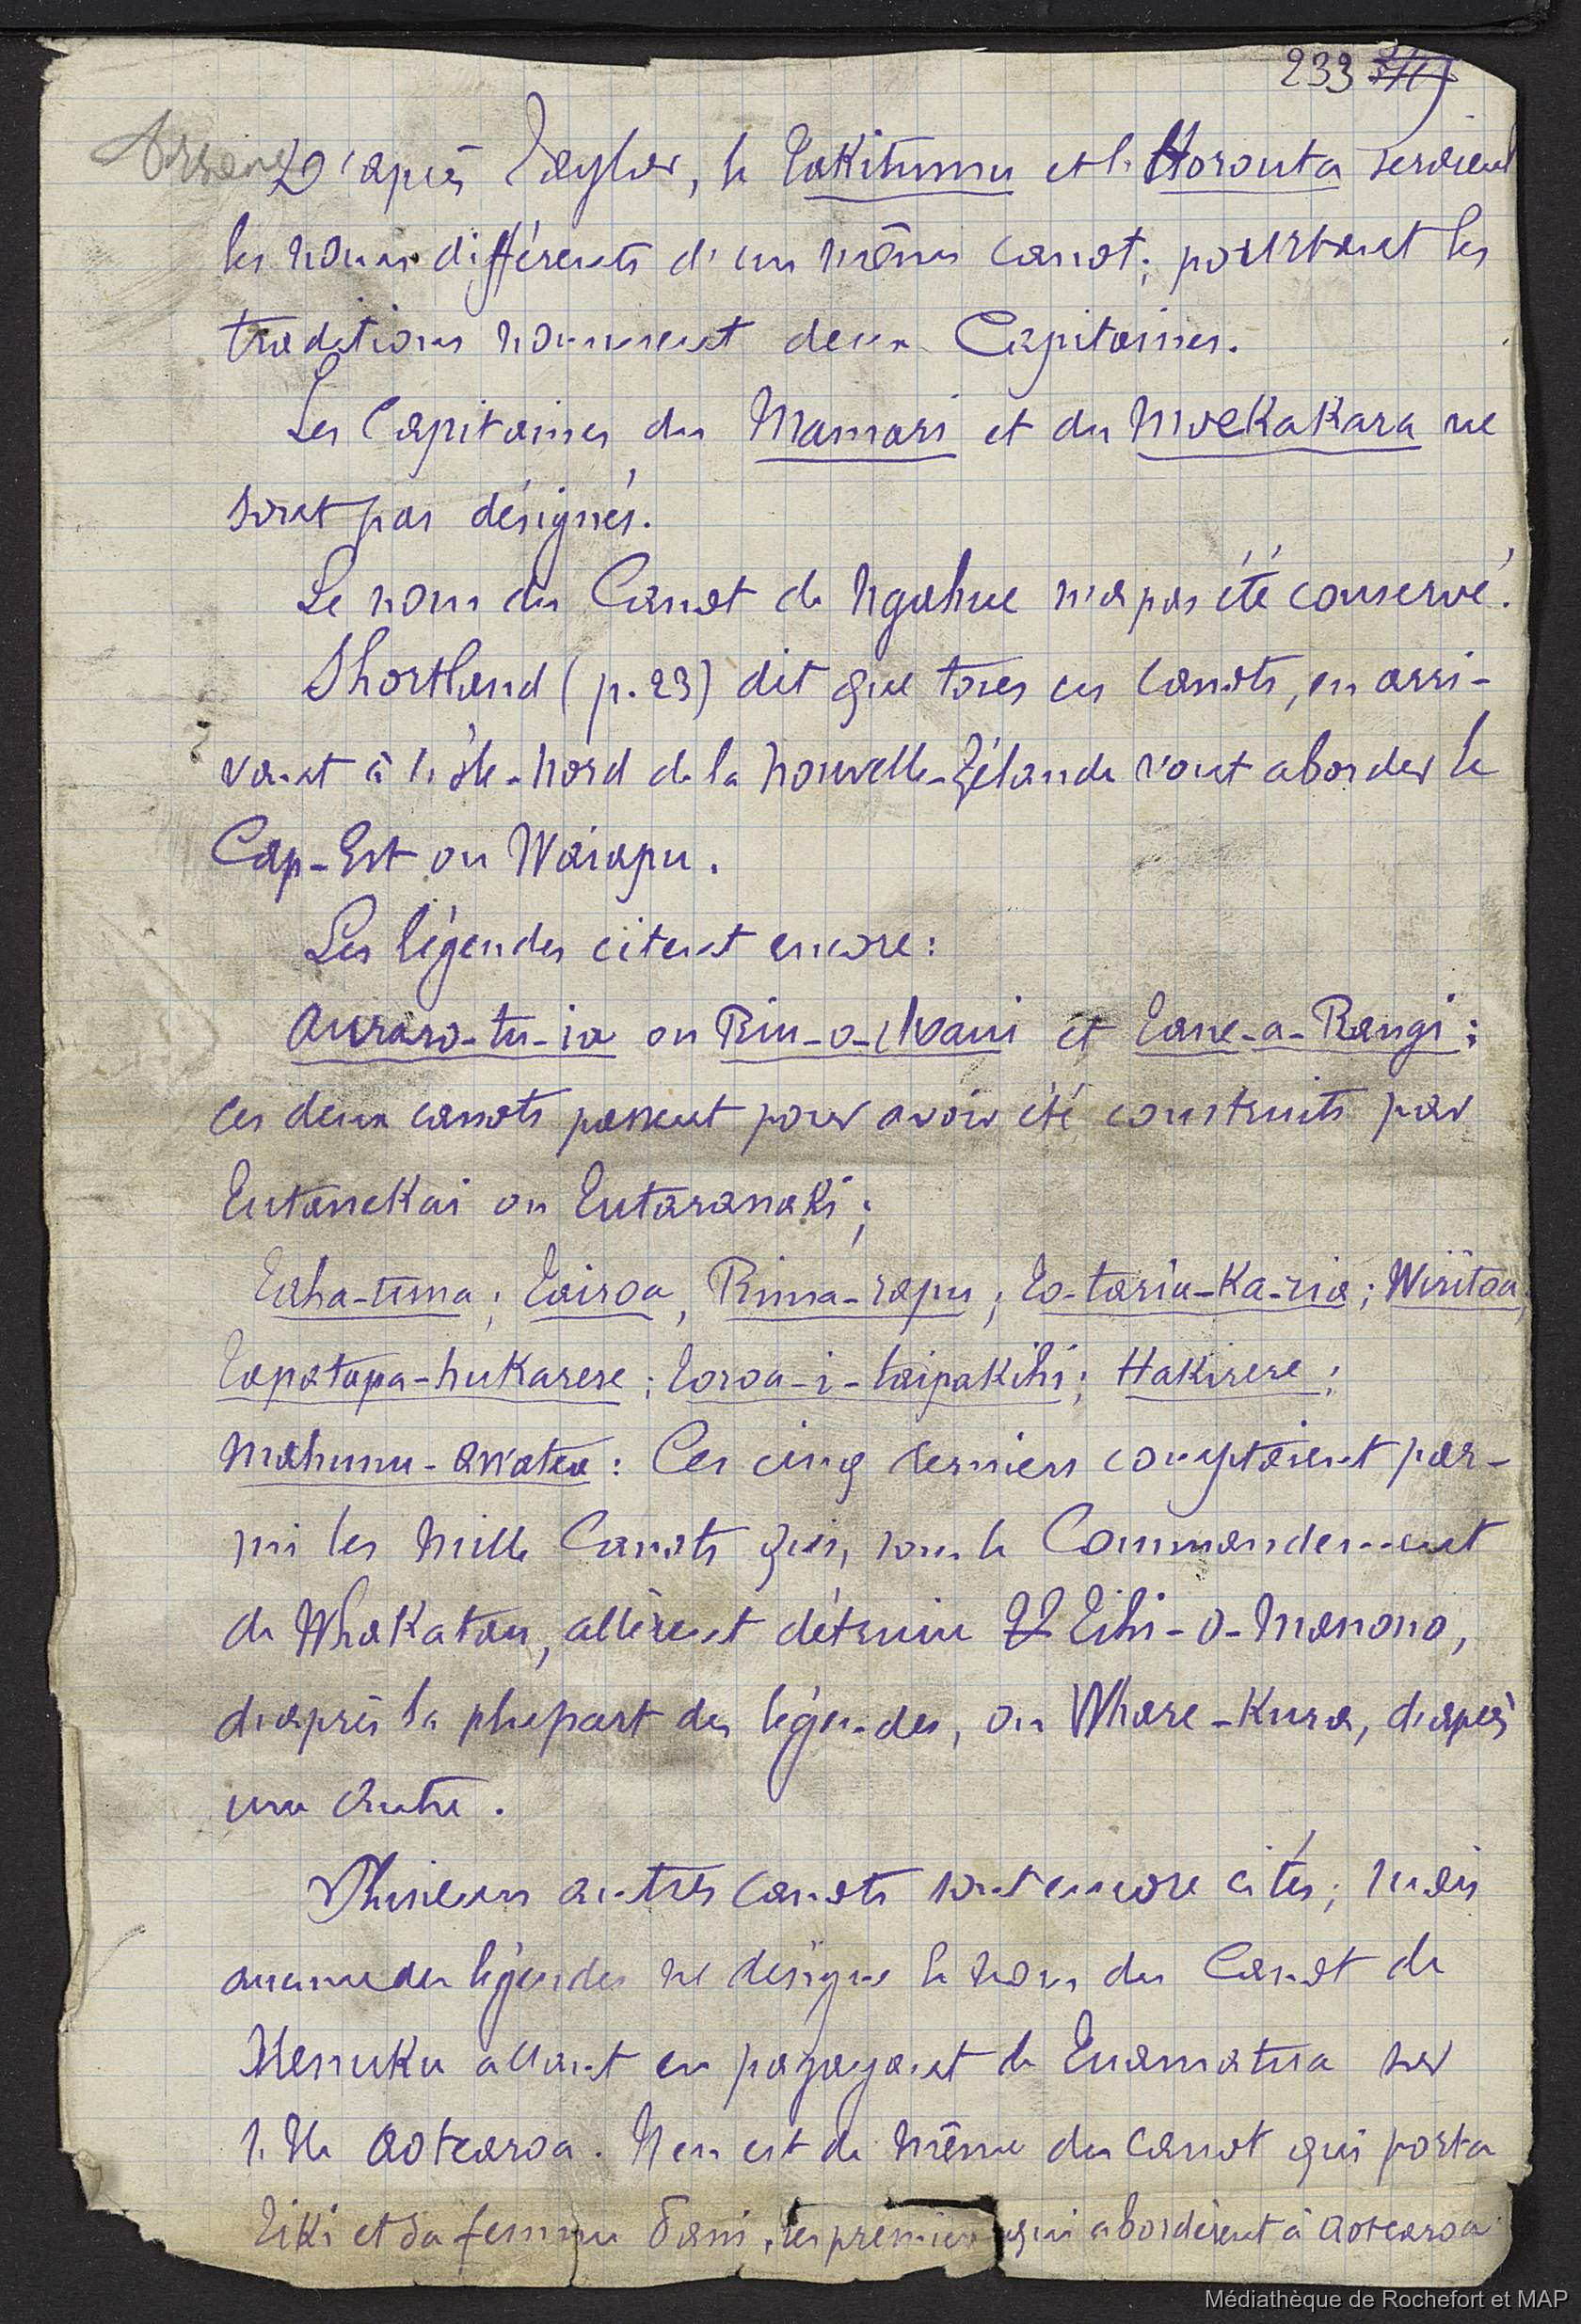 233
D'après Taylor, le Takitumu et l' Horouta seraient
les noms différents d'un même canot; pourtant les
traditions nomment deux Capitaines.
Les Capitaines du Mamari et du Moekakara ne
sont pas désignés.
Le nom du Canot de Ngahue n'a pas été conservé.
Shortland (p. 23) dit que tous ces canots, en arri-
vant à l'île-Nord de la Nouvelle-Zélande vont aborder le
Cap-Est ou Waiapu.
Les légendes citent encore:
Auraro-tu-ia ou Riu-o-Maui et Tane-a-Rangi;
ces deux canots passent pour avoir été construits par
Tutanekai ou Tutaranaki;
Taha-tuna; Tairoa, Rima-rapu; To-taria-Ka-ria; Wiritoa,
Tapatapa-hukarere; Toroa-i-taipakihi; Hakirere;
Mahunu-awatea: Ces cinq derniers comptaient par-
mi les mille Canots qui, sous le Commandement
de Whakatau, allèrent détruire Tihi-o-Manono,
d'après la plupart des légendes, ou Whare-Kura, d'après
une autre.
Plusieurs autres canots sont encore cités; mais
aucune des légendes ne désigne le nom du Canot de
Uenuku allant en pagayant de Tuamatua sur
l'île Aotearoa. Il en est de même du canot qui porta
Tiki et sa femme Oani, les premiers qui abordèrent à Aotearoa
Médiathèque de Rochefort et MAP